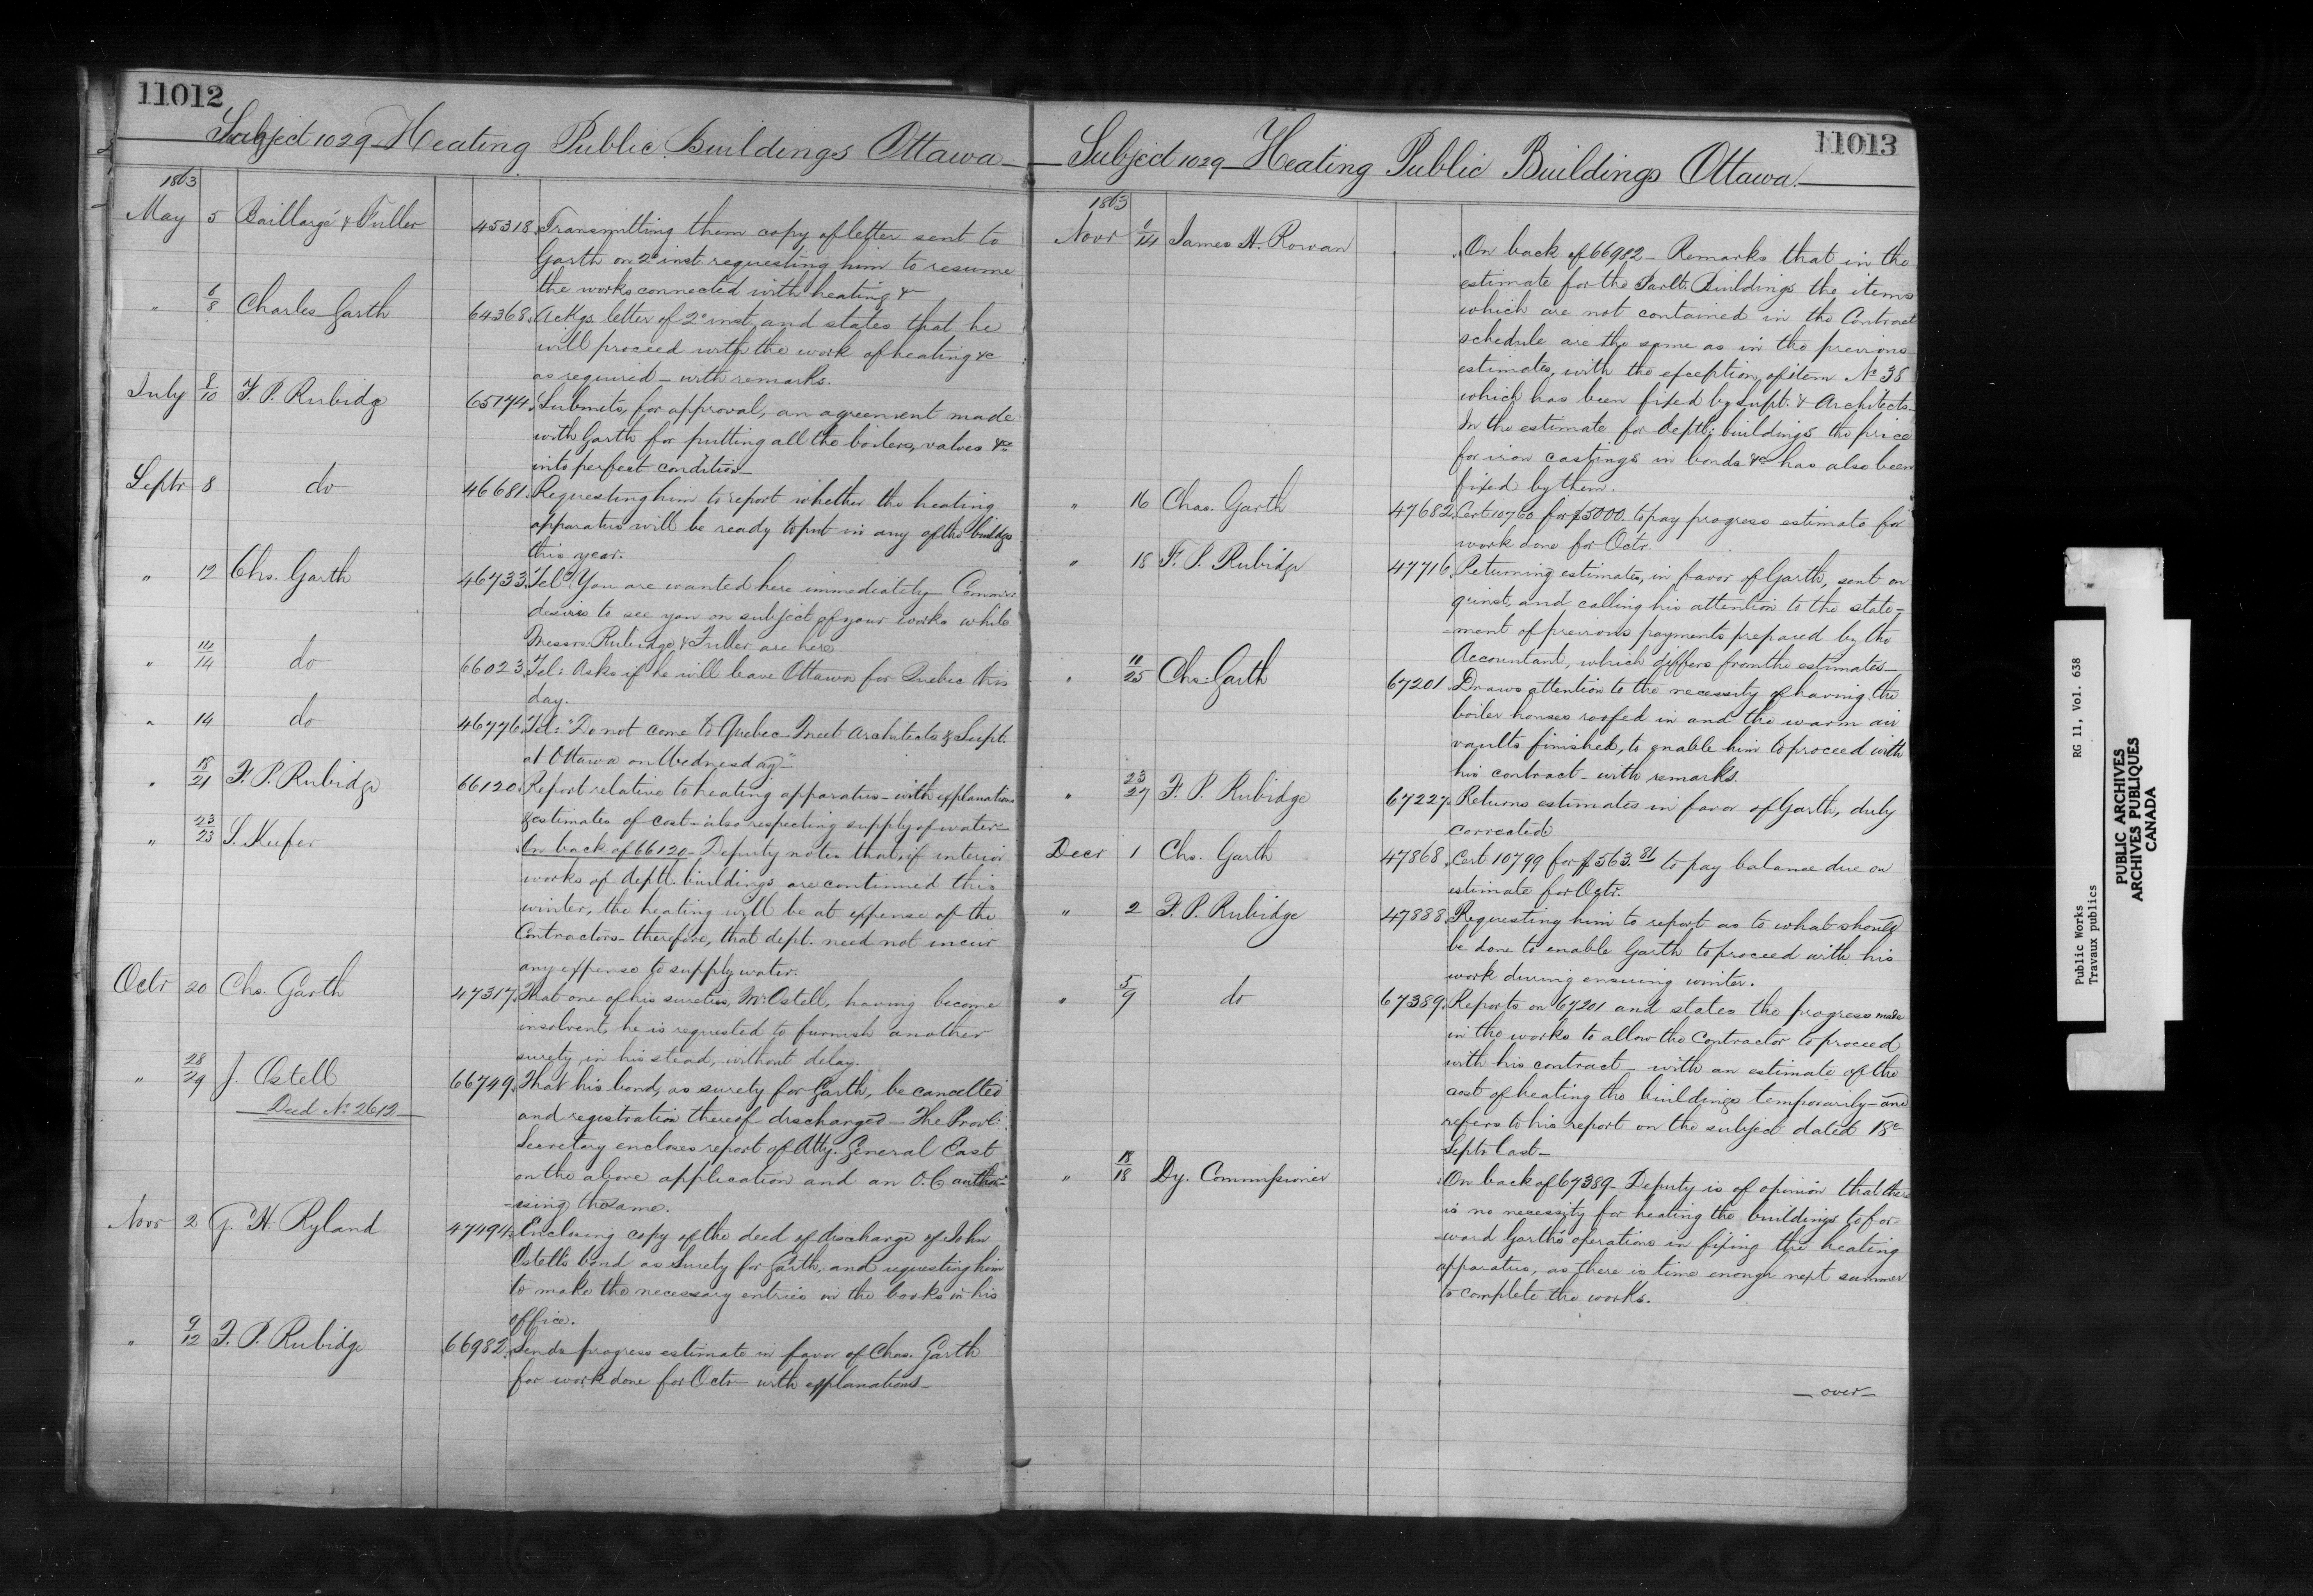 11012
Subject 1029 Heating Public Buildings Ottawa
1863
May 5 Baillargé & Fuller 45318 Transmitting them copy of letter sent to
Garth on 2d inst. requesting him to resume
the works connected with heating &
" 6/8 Charles Garth 64368 Ackgs. letter of 2d inst. and states that he
will proceed with the work of heating &c
as required — with remarks.
July 8/10 F. P. Rubidge 65174 Submits, for approval, an agreement made
with Garth for putting all the boilers, valves &c
into perfect condition —
Septr 8 do 46681 Requesting him to report whether the heating
apparatus will be ready to put in any of the buildgs
this year.
" 12 Chs. Garth 46733 Tel "You are wanted here immediately — Commr.
desires to see you on subject of your works while
Messrs. Rubidge & Fuller are here.
" 14/14 do 66023 Tel: Asks if he will leave Ottawa for Quebec this
day.
" 14 do 46776 Tel: "Do not come to Quebec — Meet Architects & Supt.
at Ottawa on Wednesday"—
" 18/21 F. P. Rubidge 66120 Report relative to heating apparatus — with explanations
& estimates of cost — also respecting supply of water —
" 23/23 S. Keefer On back of 66120 — Deputy notes that, if interior
works of deptl. buildings are continued this
winter, the heating will be at expense of the
Contractors — therefore, that dept. need not incur
any expense to supply water.
Octr 20 Chs. Garth 47317 That one of his sureties, Mr. Ostell, having become
insolvent, he is requested to furnish another
surety, in his stead, without delay.
" 28/29 J. Ostell 66749 That his bond, as surety for Garth, be cancelled
Deed No. 2612 and registration thereof discharged — The Provl.
Secretary encloses report of Atty. General East
on the above application and an O.C. author-
-ising the same.
Novr 2 G. H. Ryland 47494 Enclosing copy of the deed of discharge of John
Ostell's bond as Surety for Garth, and requesting him
to make the necessary entries in the books in his
office.
" 9/12 F. P. Rubidge 66982 Sends progress estimate in favor of Chas. Garth
for work done for Octr — with explanations —
11013
Subject 1029 — Heating Public Buildings Ottawa.
1863
Novr /14 James H. Rowan On back of 66982 — Remarks that in the
estimate for the Parlt. Buildings the items
which are not contained in the Contract
schedule are the same as in the previous
estimates, with the exception of item No. 38
which has been fixed by Supt. & Architects —
In the estimate for deptl. buildings the price
for iron castings in bonds &c has also been
fixed by them.
" 16 Chas. Garth 47682 Cert. 10760 for $5000. to pay progress estimate for
work done for Octr.
" 18 F. P. Rubidge 47716 Returning estimates, in favor of Garth, sent on
9 inst, and calling his attention to the state-
-ment of previous payments prepared by the
Accountant, which differs from the estimates —
" 11/25 Chs. Garth 67201 Draws attention to the necessity of having the
boiler houses roofed in and the warm air
vaults finished, to enable him to proceed with
his contract — with remarks.
" 23/27 F. P. Rubidge 67227 Returns estimates in favor of Garth, duly
corrected
Decr 1 Chs. Garth 47868 Cert 10799 for $563.81 to pay balance due on
estimate for Octr.
" 2 F. P. Rubidge 47888 Requesting him to report as to what should
be done to enable Garth to proceed with his
work during ensuing winter.
" 5/9 do 67389 Reports on 67201 and states the progress made
in the works to allow the Contractor to proceed
with his contract — with an estimate of the
cost of heating the buildings temporarily — and
refers to his report on the subject dated 18th
Septr last —
" 18/18 Dy. Commissioner On back of 67389 — Deputy is of opinion that there
is no necessity for heating the buildings to for-
-ward Garth's operations in fixing the heating
apparatus, as there is time enough next summer
to complete the works.
— over —
Public Works RG 11, Vol. 638
Travaux publics
PUBLIC ARCHIVES
ARCHIVES PUBLIQUES
CANADA